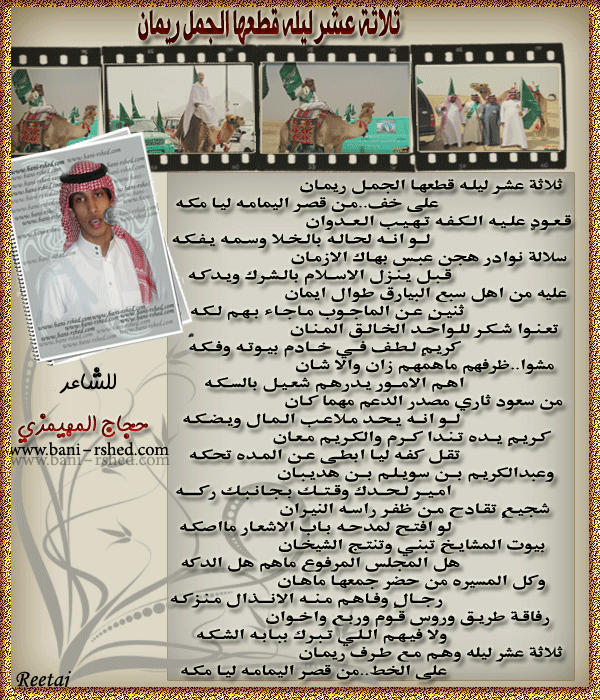 ثلاثة عشر ليله قطعها الجمل ريمان
ثلاثة عشر ليله قطعها الجمل ريمان
على خف..من قصر اليمامه ليا مكه
قعودٍ عليه الكفه تهيب العدوان
لو انه لحاله بالخلا وسمه يفكه
سلالة نوادر هجن عبس بهاك الازمان
قبل ينزل الاسلام بالشرك ويدكه
عليه من اهل سبع البيارق طوال ايمان
ثنين عن الماجوب ماجاء بهم لكه
تعنوا شكر للواحد الخالق المنان
كريم لطف في خادم بيوته وفكه
مشوا..ظرفهم ماهمهم زان والا شان
اهم الامور يدرهم شعيل بالسكه
من سعود ثاري مصدر الدعم مهما كان
لو انه يحد ملاعب المال ويضكه
كريم يده تندا كرم والكريم معان
تقل كفه ليا ابطى عن المده تحكه
وعبدالكريم بن سويلم بن هديبان
امير لحدك وقتك بجانبك ركه
شجيع تقادح من ظفر راسه النيران
لو افتح لمدحه باب الاشعار مااصكه
بيوت المشايخ تبني وتنتج الشيخان
هل المجلس المرفوع ماهم هل الدكه
وكل المسيره من حضر جمعها ماهان
رجال وفاهم منه الانذال منزكه
رفاقة طريق وروس قوم وربع واخوان
ولا فيهم اللي تبرك ببابه الشكه
ثلاثة عشر ليله وهم مع طرف ريمان
على الخط..من قصر اليمامه ليا مكه
للشاعر
حجاج المهيمزي
www.bani-rshed.com
Reetaj